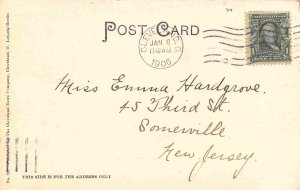 POST CARD
CLEVELAND, O.
JAN 8
11 30 AM
1906
Miss Emma Hardgrove.
45 Third St.
Somerville
New Jersey.
The Cleveland News Company, Cleveland, O. Leipzig-Berlin
THIS SIDE IS FOR THE ADDRESS ONLY